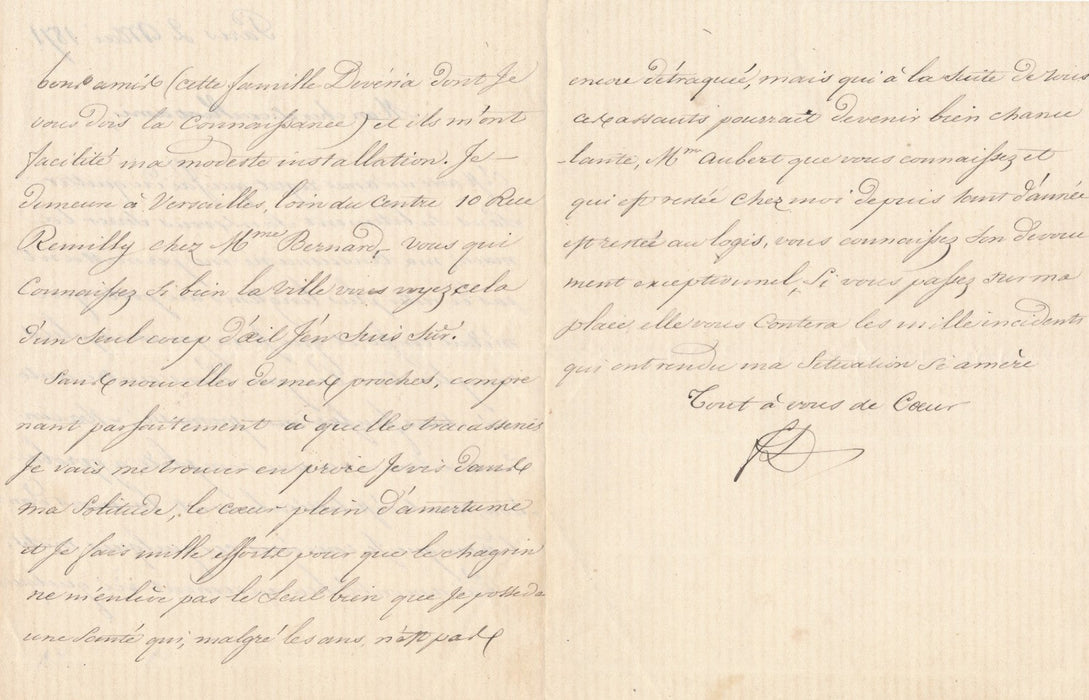 bons amis (cette famille Devéria dont Je
vous dois la Connaissance) et ils m'ont
facilité ma modeste installation. Je
demeure à Versailles, loin du Centre 10 Rue
Remilly chez Mme Bernard, vous qui
Connaissez si bien la ville vous voyez cela
d'un seul coup d'œil J'en suis Sûr.
Sans nouvelles de mes proches, compre
nant parfaitement à quelles tracasseries
Je vais me trouver en proie Je vis dans
ma Solitude, le cœur plein d'amertume
et Je fais mille efforts pour que le chagrin
ne m'enlève pas le Seul bien que Je possède
une Santé qui, malgré les ans, n'est pas
encore détraquée, mais qui à la suite de tous
ces assauts pourrait devenir bien chance
-lante, Mme Aubert que vous connaissez et
qui est restée chez moi depuis tant d'année
est restée au logis, vous connaissez Son dévoue
ment exceptionnel, Si vous passez sur ma
place elle vous Contera les mille incidents
qui ont rendu ma Situation Si amère
Tout à vous de Cœur
Paris 2 Mai 1871